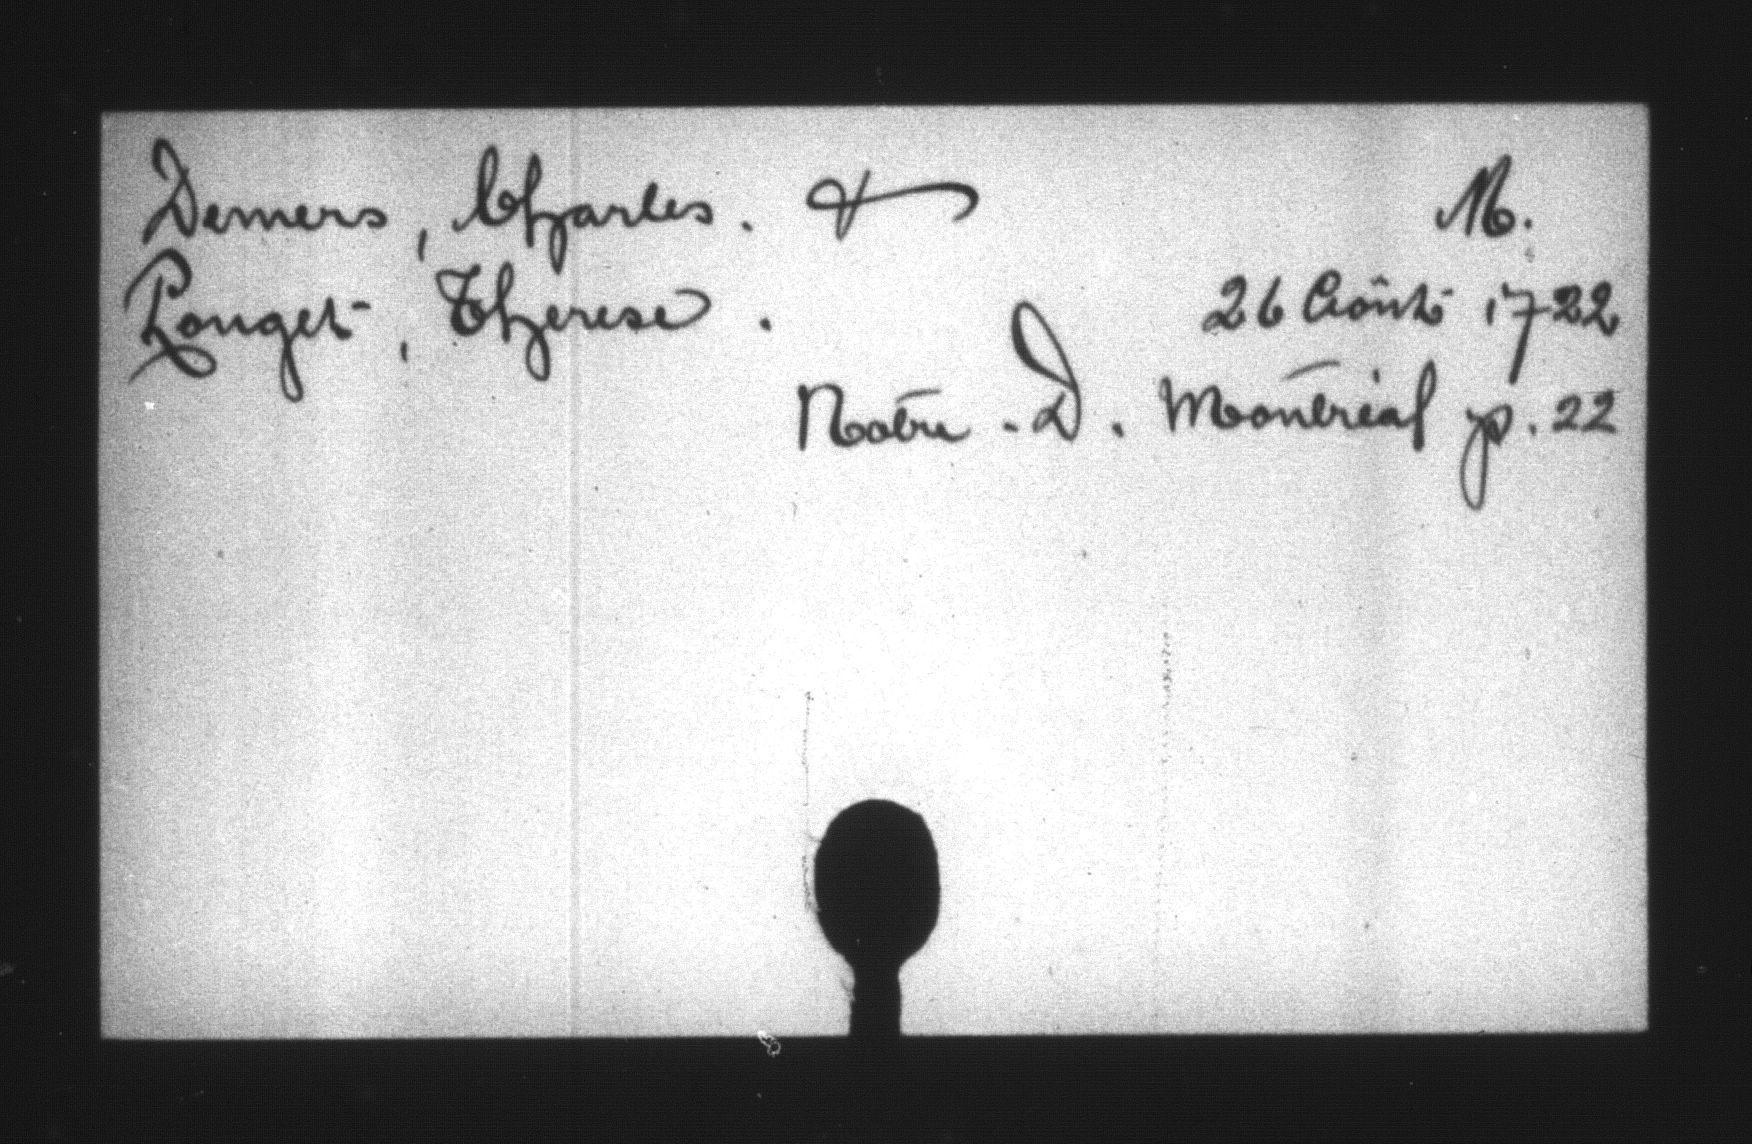 Demers, Charles. & M.
Pouget, Therese. 26 Août 1722
Notre-D. Montréal p. 22